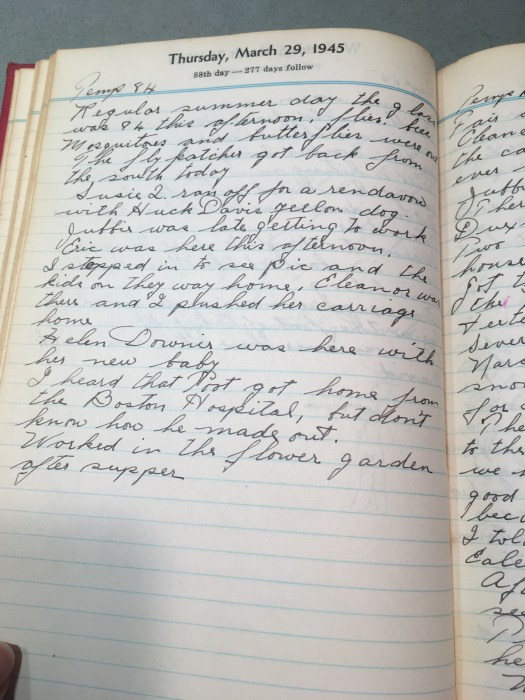 Thursday, March 29, 1945
88th day — 277 days follow
Temp 84
Regular summer day the glass
was 84 this afternoon, flies, bees
Mosquitoes and butterflies were out
The fly katcher got back from
the south today
Susie 2. ran off for a rendavou
with Huck Davis yellow dog.
Jubbie was late getting to work
Vic was here this afternoon.
I stopped in to see Pic and the
kids on they way home. Eleanor was
there and I pushed her carriage
home
Helen Downie was here with
her new baby
I heard that Poot got home from
the Boston Hospital, but don't
know how he made out.
Worked in the flower garden
after supper
Temp
Fair
Clean
the ca
ever
Jubbi
Ther
Dux
Two
house
got t
the
Ferti
Sever
Narc
snow
for
The
to the
we s
good
beca
I tol
Cale
Af
see
he